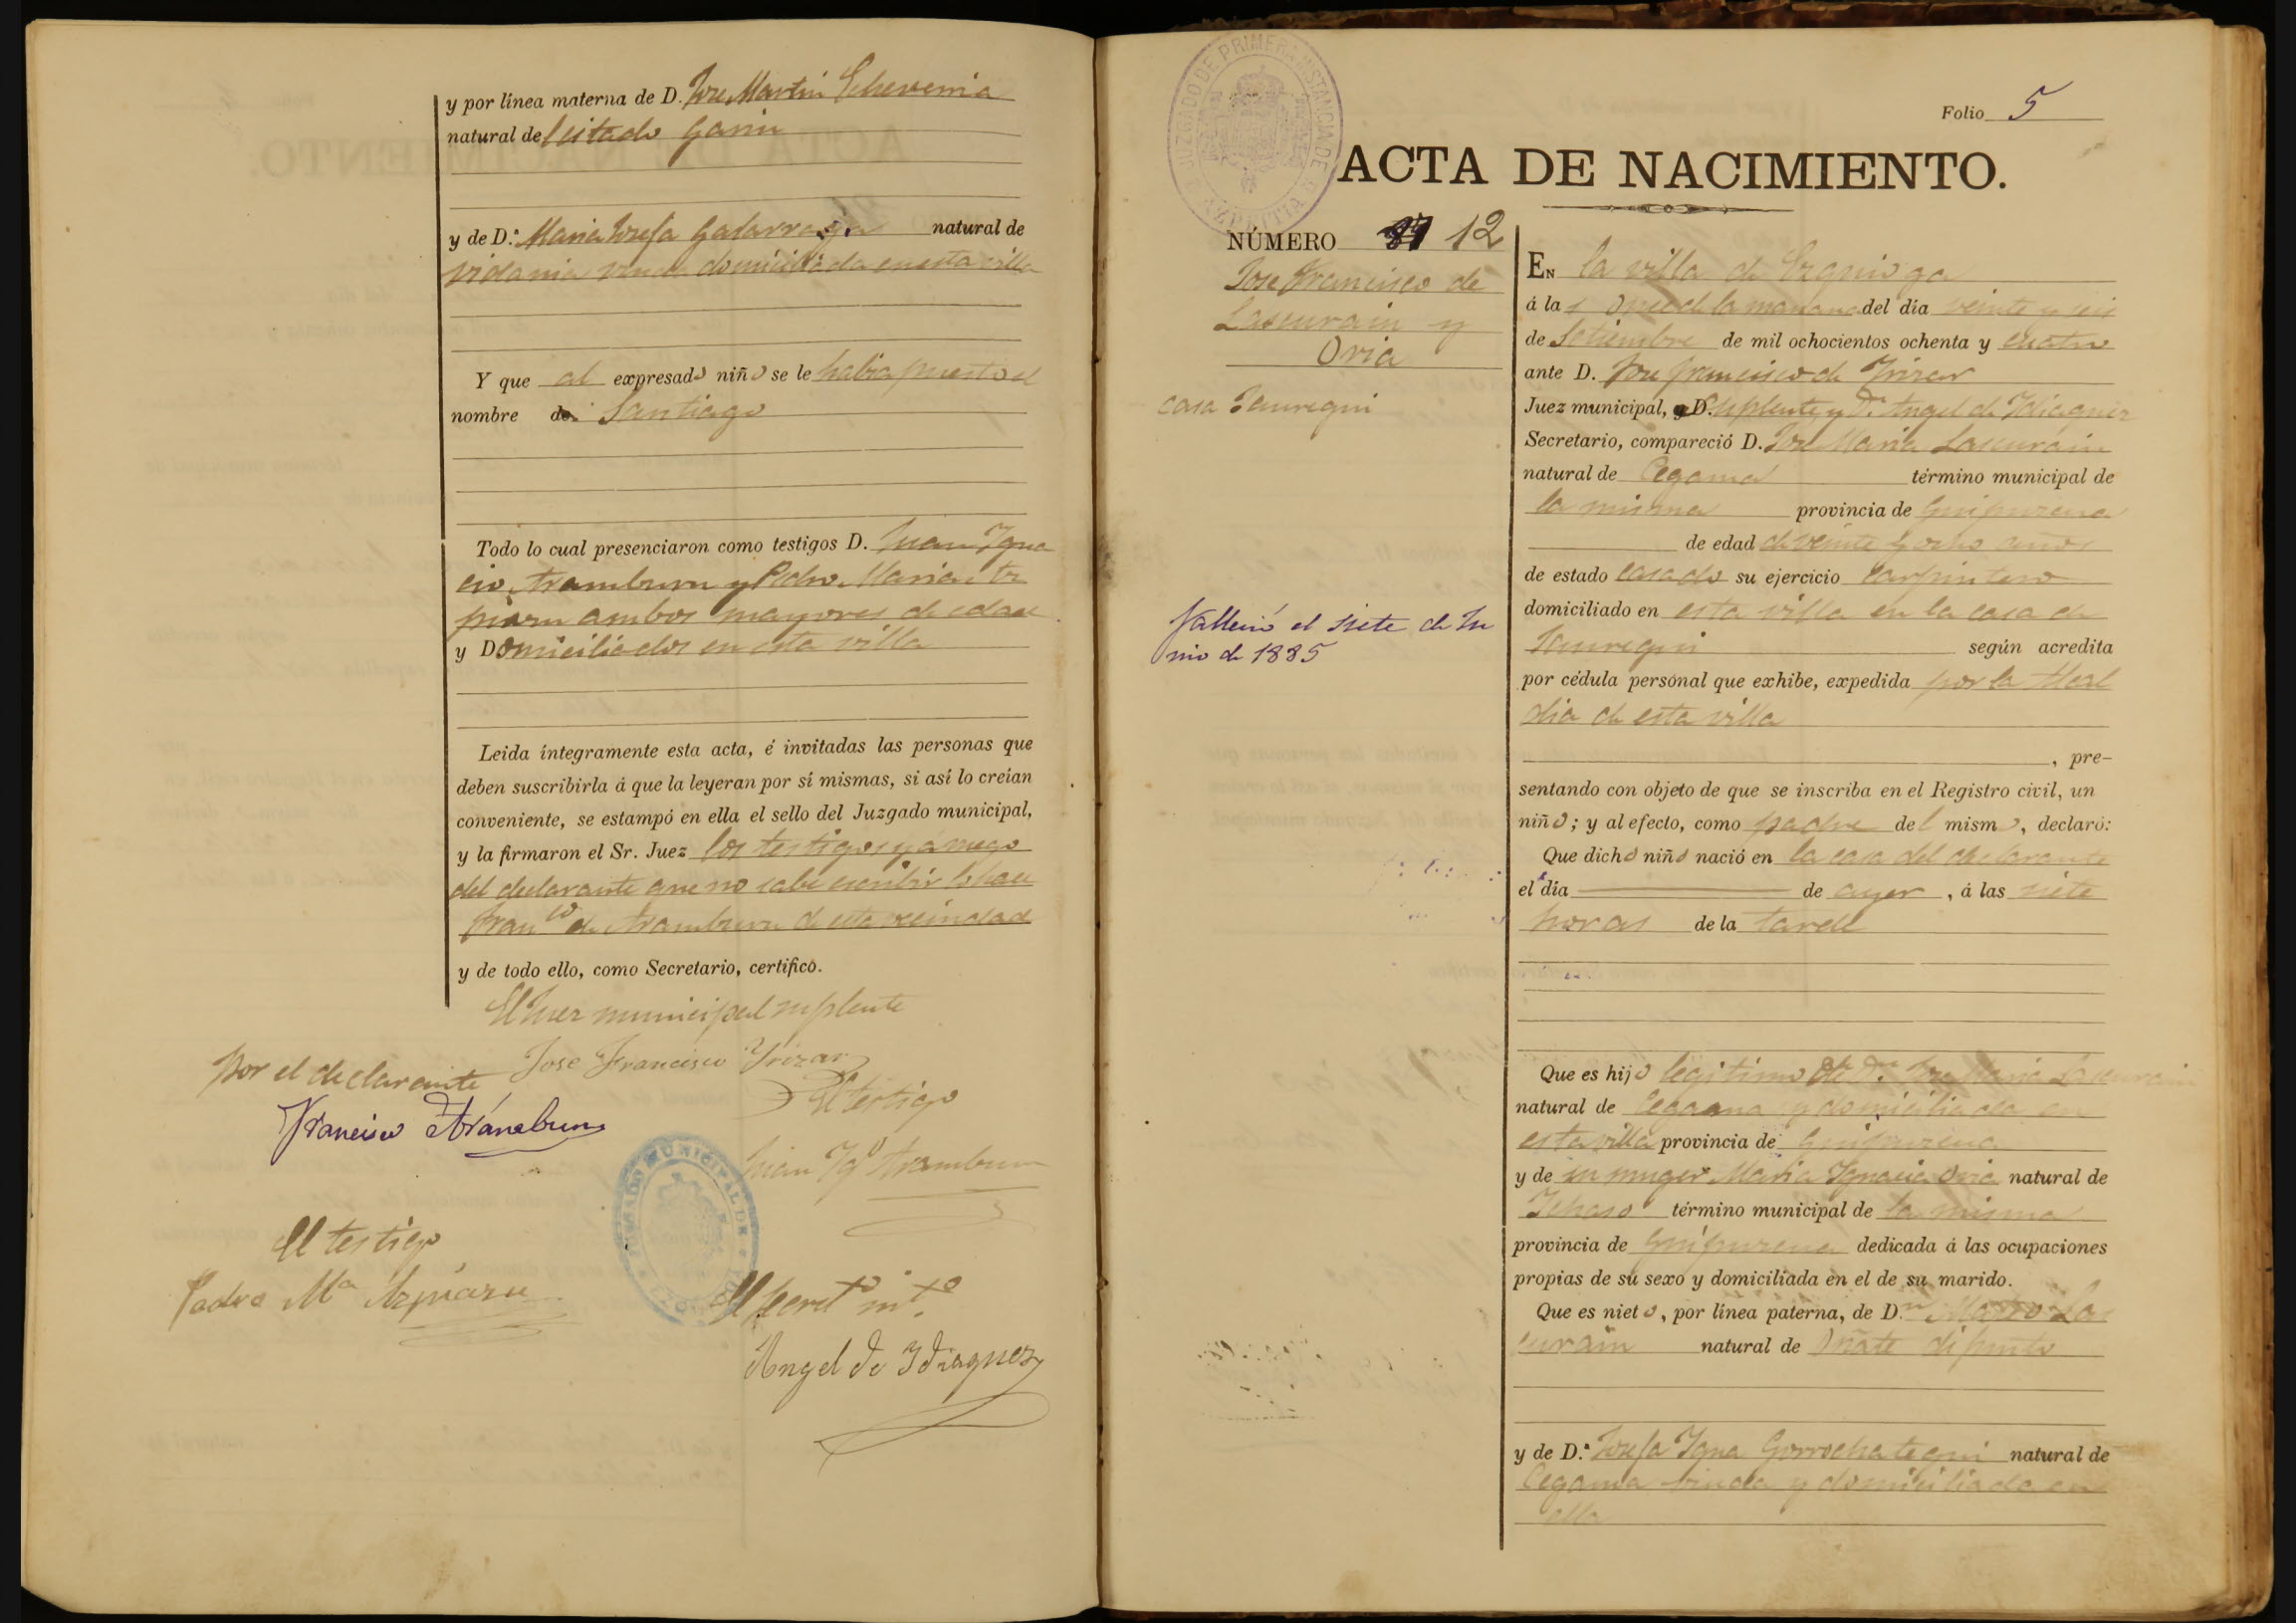 y por línea materna de D. Jose Martin Echeverria
natural de Citado Gavin
y de D.ª Maria Josefa Galarraga natural de
Vidania viuda domiciliada en esta villa
Y que al expresado niño se le habia puesto el
nombre de Santiago
Todo lo cual presenciaron como testigos D. Juan Igna
cio Aramburu y Pedro Maria Az
piazu ambos mayores de edad
y Domiciliados en esta villa
Leida íntegramente esta acta, é invitadas las personas que
deben suscribirla á que la leyeran por sí mismas, si así lo creían
conveniente, se estampó en ella el sello del Juzgado municipal,
y la firmaron el Sr. Juez los testigos y á ruego
del declarante que no sabe escribir lo hace
Franco de Aramburu de esta vecindad
y de todo ello, como Secretario, certifico.
El Juez municipal suplente
Jose Francisco Yrizar
por el declarante
Francisco Aramburu
El testigo
Juan Igo Aramburu
El testigo
Pedro Ma Azpiazu
JUZGADO MUNICIPAL DE
El Secreto into
Angel de Idiaquez
JUZGADO DE PRIMERA INSTANCIA DE AZPEITIA
Folio 5
ACTA DE NACIMIENTO.
NÚMERO 12
Jose Francisco de
Lascurain y
Oria
casa Jauregui
Falleció el siete de Ju
nio de 1885
EN la villa de Ezquioga
á las once de la mañana del día veinte y seis
de Setiembre de mil ochocientos ochenta y cuatro
ante D. Jose Francisco de Yrizar
Juez municipal, D. suplente y Dn Angel de Idiaquez
Secretario, compareció D. Jose Maria Lascurain
natural de Cegama término municipal de
la misma provincia de Guipuzcoa
de edad de veinte y ocho años
de estado casado su ejercicio carpintero
domiciliado en esta villa en la casa de
Jauregui según acredita
por cédula personal que exhibe, expedida por la Alcal
dia de esta villa
, pre-
sentando con objeto de que se inscriba en el Registro civil, un
niño; y al efecto, como padre del mismo, declaró:
Que dicho niño nació en la casa del declarante
el día de ayer, á las siete
horas de la tarde
Que es hijo legitimo de Dn Jose Maria Lascurain
natural de Cegama y domiciliado en
esta villa provincia de Guipuzcoa
y de su muger Maria Ignacia Oria natural de
Ichaso término municipal de la misma
provincia de Guipuzcoa dedicada á las ocupaciones
propias de su sexo y domiciliada en el de su marido.
Que es nieto, por línea paterna, de Dn Las
curain natural de Oñate difunto
y de D.ª Josefa Igna Gorrochategui natural de
Cegama viuda y domiciliada en
ella